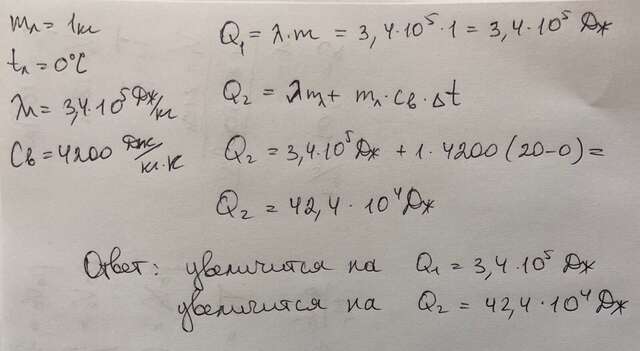 mл = 1кг
tл = 0°C
λл = 3,4·10⁵ Дж/кг
Cв = 4200 Дж/кг·К
Q₁ = λ·m = 3,4·10⁵·1 = 3,4·10⁵ Дж
Q₂ = λmл + mл·Cв·Δt
Q₂ = 3,4·10⁵Дж + 1·4200(20-0) =
Q₂ = 42,4·10⁴Дж
Ответ: увеличится на Q₁ = 3,4·10⁵ Дж
увеличится на Q₂ = 42,4·10⁴ Дж